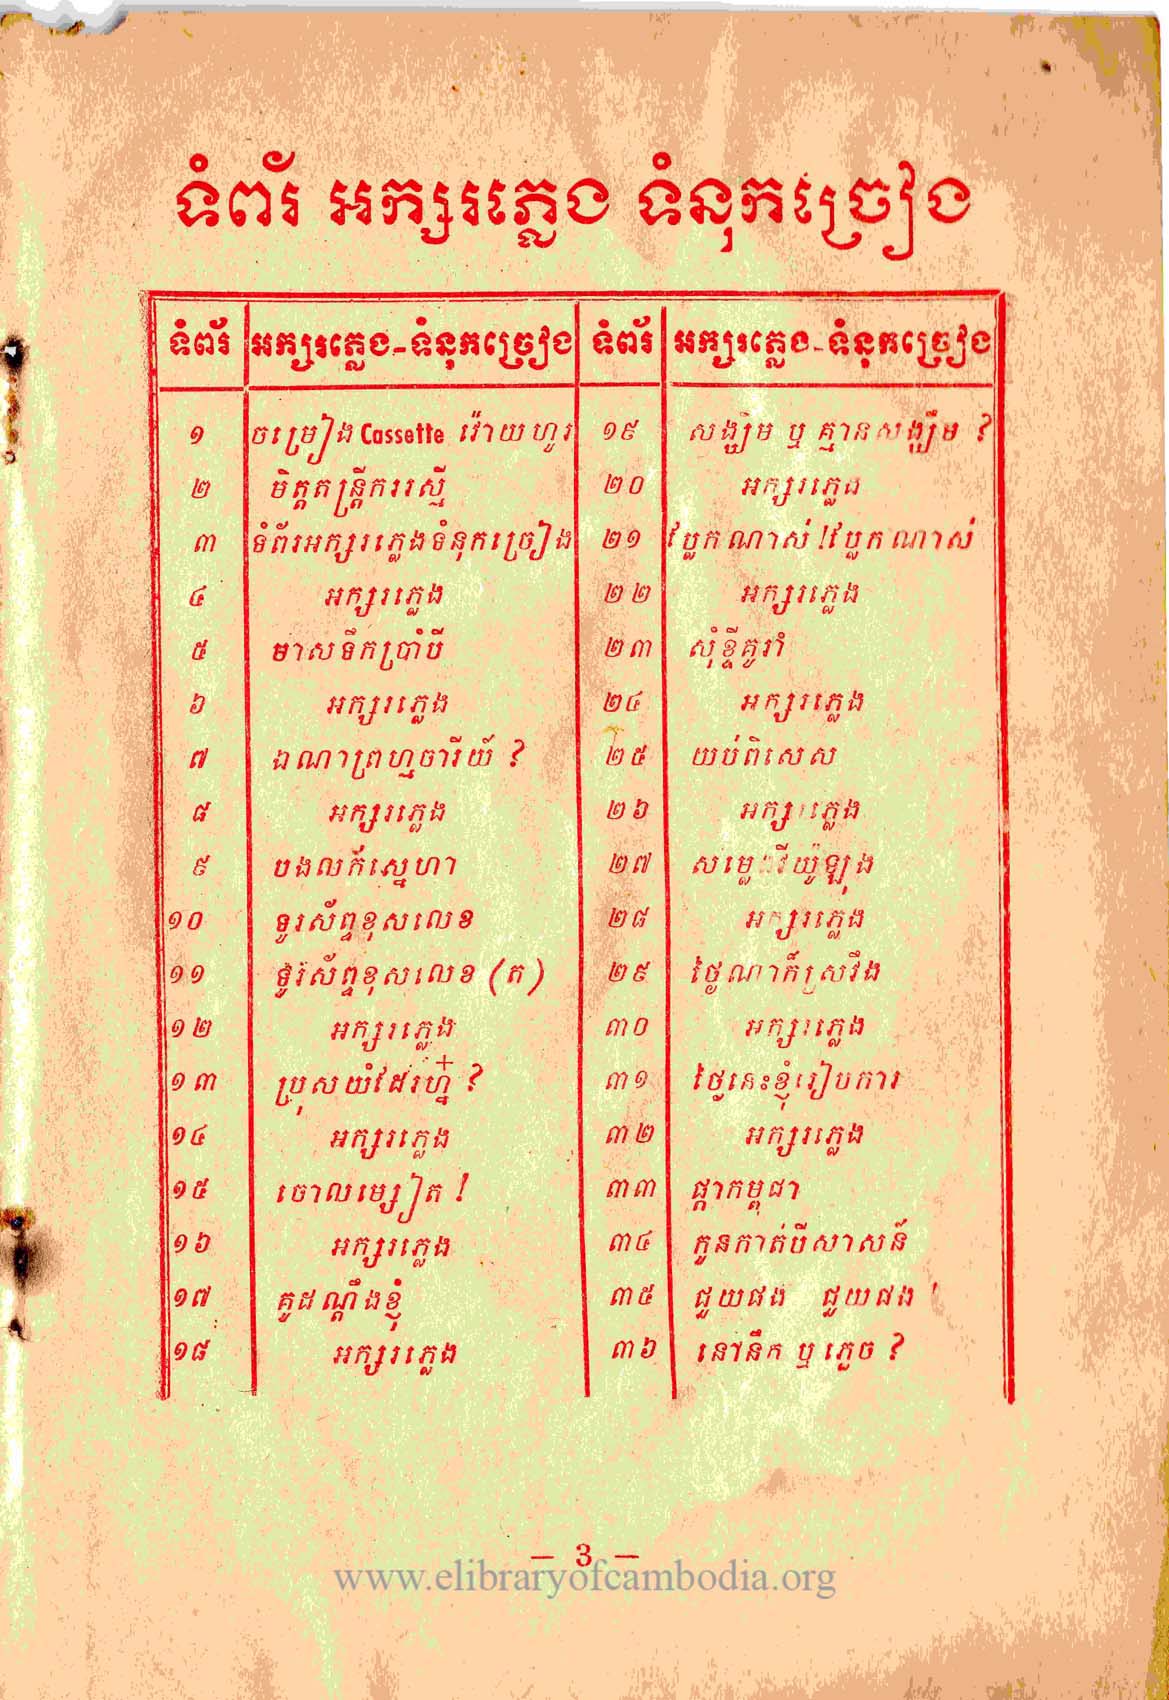 ទំពរ័ អក្សរភ្លេង ទំនុកច្រៀង
ទំពរ័ អក្សរភ្លេង-ទំនុកច្រៀង ទំពរ័ អក្សរភ្លេង-ទំនុកច្រៀង
១ ចម្រៀង Cassette វ៉ោយហូរ ១៩ សង្ឃឹម ឬ គ្មានសង្ឃឹម ?
២ មិត្តតន្ត្រីការរស្មី ២០ អក្សរភ្លេង
៣ ទំព័រអក្សរភ្លេងទំនុកច្រៀង ២១ ប្លែកណាស់ !ប្លែកណាស់
៤ អក្សរភ្លេង ២២ អក្សរភ្លេង
៥ មាសទឹកប្រាំបី ២៣ សុំខ្ទីគូរាំ
៦ អក្សរភ្លេង ២៤ អក្សរភ្លេង
៧ ឯណាព្រហ្មចារីយ៍ ? ២៥ យប់ពិសេស
៨ អក្សរភ្លេង ២៦ អក្សរភ្លេង
៩ បងលក់ស្នេហា ២៧ សម្លេងវីយ៉ូឡុង
១០ ទូរស័ព្ទខុសលេខ ២៨ អក្សរភ្លេង
១១ ទូរស័ព្ទខុសលេខ (ត) ២៩ ថ្ងៃណាក៏ស្រវឹង
១២ អក្សរភ្លេង ៣០ អក្សរភ្លេង
១៣ ប្រុសយំដែរហ្ន៎ ? ៣១ ថ្ងៃនេះខ្ញុំរៀបការ
១៤ អក្សរភ្លេង ៣២ អក្សរភ្លេង
១៥ ចោលម្សៀត ! ៣៣ ផ្កាកម្ពុជា
១៦ អក្សរភ្លេង ៣៤ កូនកាត់បីសាសន៍
១៧ គូដណ្តឹងខ្ញុំ ៣៥ ជួយផង ជួយផង !
១៨ អក្សរភ្លេង ៣៦ នៅនឹក ឬ ភ្លេច ?
— 3 —
www.elibraryofcambodia.org